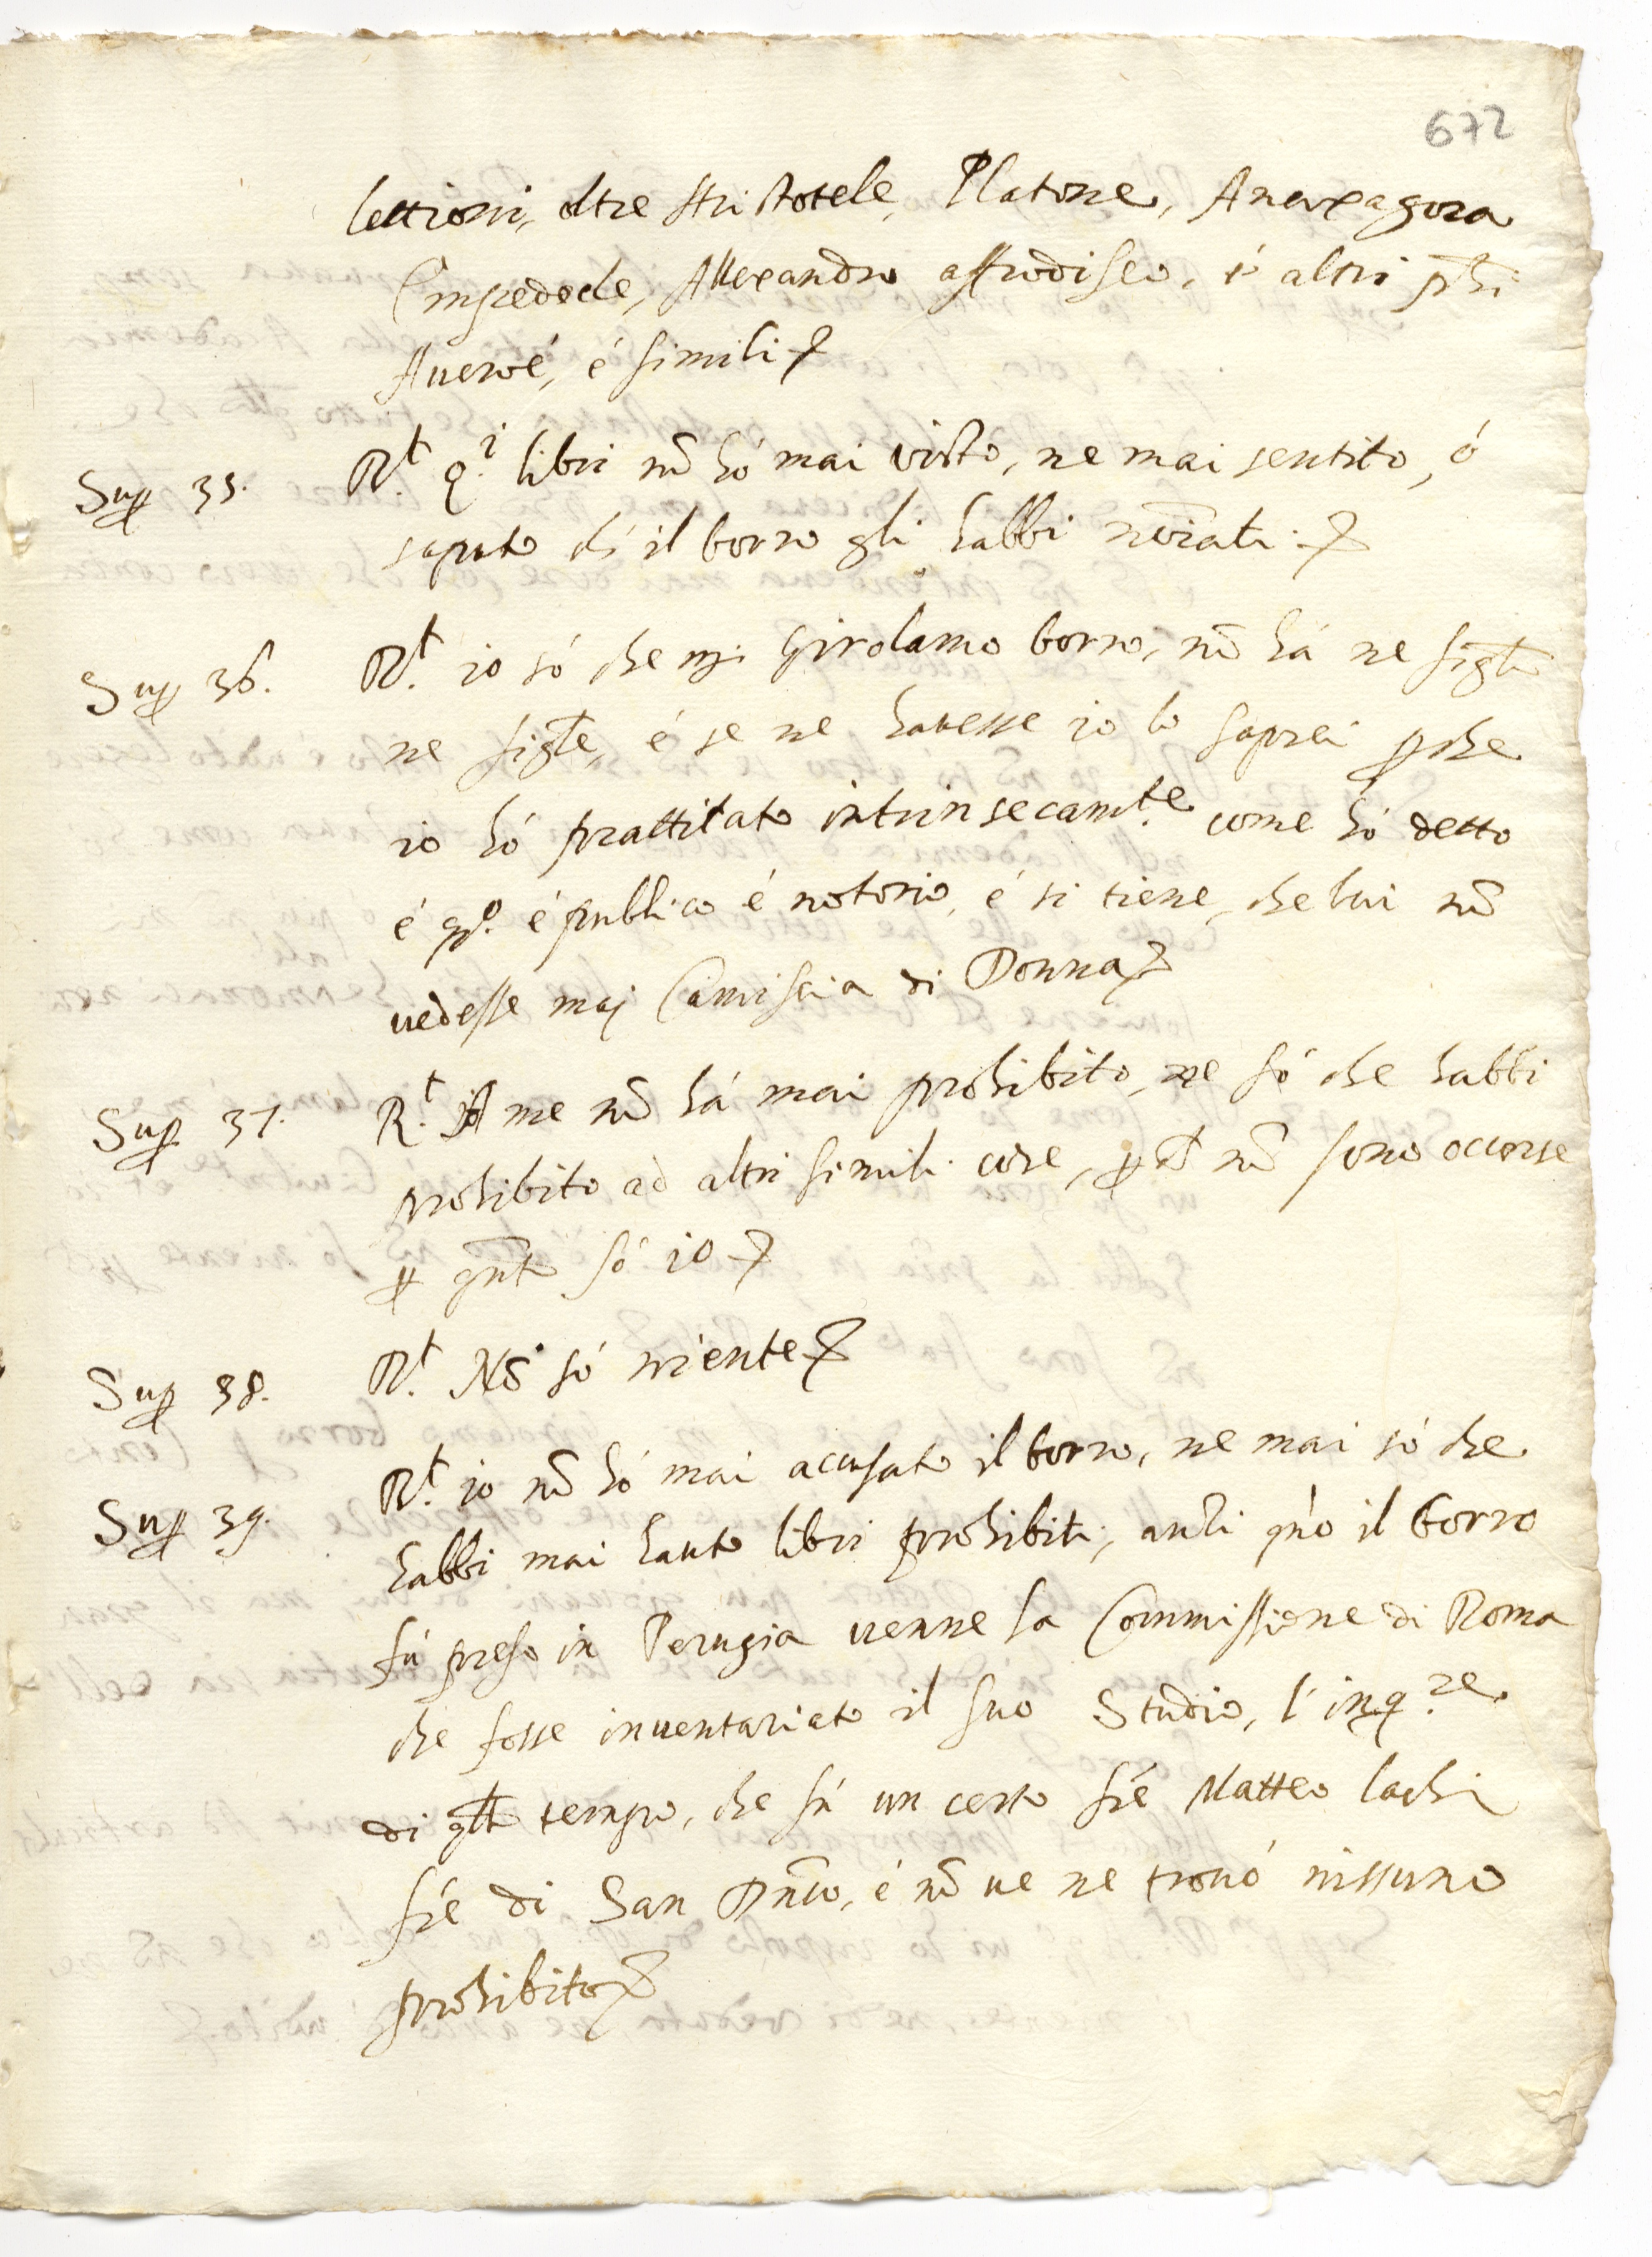 672
lettioni, oltre Aristotele, Platone, Anaxagora
Empedocle, Allexandro afrodiseo, é altri phi
Averoé, é simili
Sup 35. Rt. q.i libri nõ hó mai visto, ne mai sentito, ó
saputo ch' il borro gli habbi noĩati
Sup 36. Rt. io só che m. Girolamo borro, nõ há ne figli
ne figle, é se ne havesse io lo saprei pche
io hó pratticato intrinsecamte come hó detto
é qo. é publico é notorio, é si tiene, che lui nõ
vedesse maj Camiscia di Donna
Sup 37. Rt. A me nõ há mai prohibito, ne só che habbi
prohibito ad altri simili cose, p ch' nõ sono occorse
p qnto só io
Sup 38. Rt. Nõ só niente
Sup 39. Rt. io nõ hó mai accusato il borro, ne mai só che
habbi mai hauto libri prohibiti, anzi qño il borro
fú preso in Perugia venne la Commissione di Roma
che fosse inventariato il suo Studio, l'inq.re
di qllo tempo, che fú un certo fre Matteo lachi
fre di San Dñico, é nõ ve ne trovó nissuno
prohibito